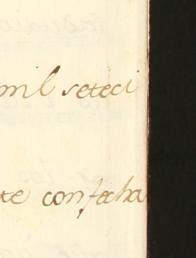 mil seteci
te con fecha